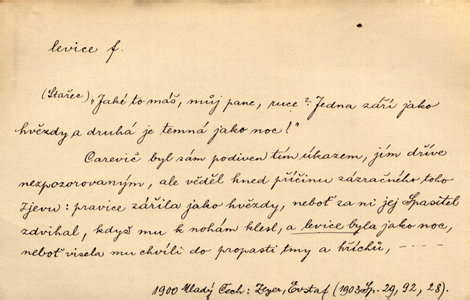 levice f.
(Stařec) „Jaké to máš, můj pane, ruce? Jedna září jako
hvězdy a druhá je temná jako noc!"
Carevič byl sám podiven tím úkazem, jím dříve
nezpozorovaným, ale věděl hned příčinu zázračného toho
zjevu: pravice zářila jako hvězdy, neboť za ni jej Spasitel
zdvihal, když mu k nohám klesl, a levice byla jako noc,
neboť visela mu chvíli do propasti tmy a hříchů, – – – –
1900 Mladý Čech: Zeyer, Evstaf (1903 Sp. 29, 92, 28).